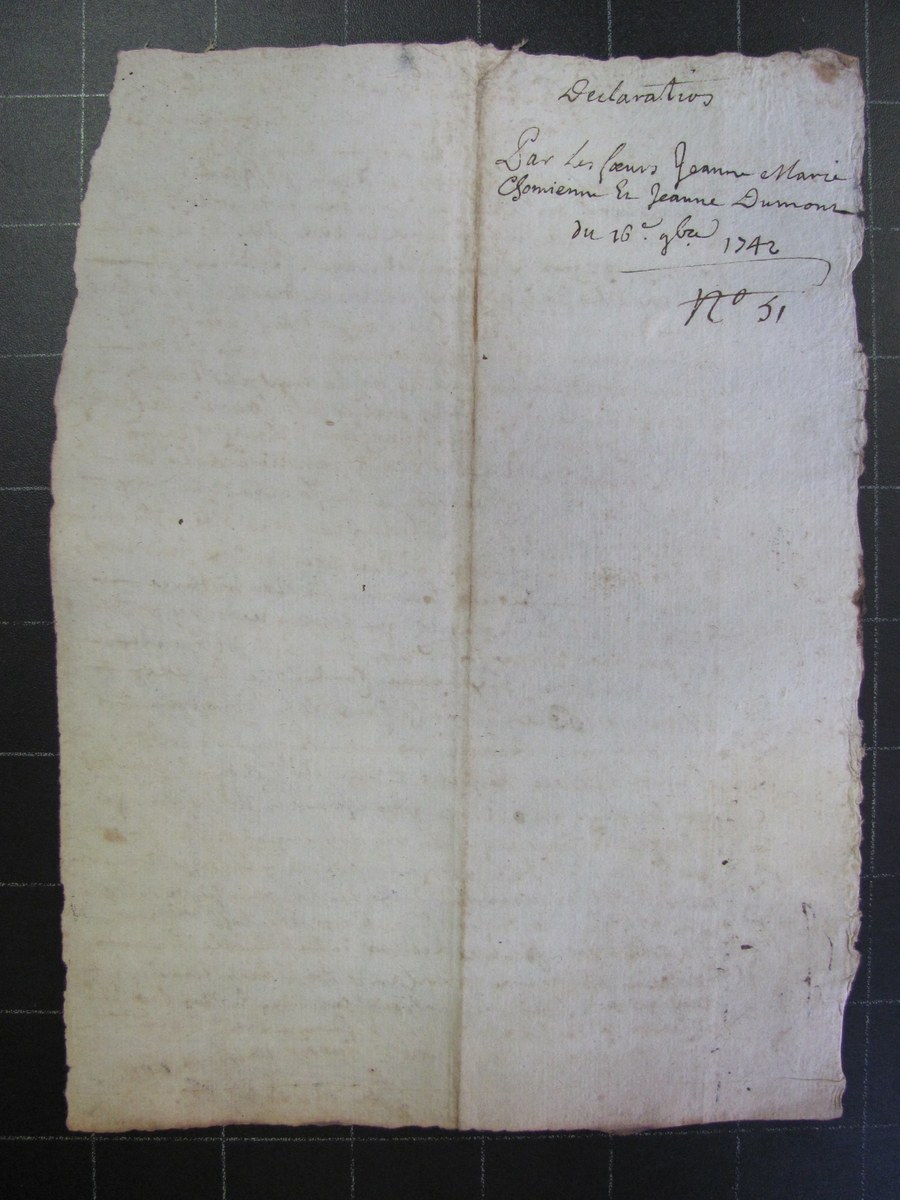 Declaration
Par les sœurs Jeanne Marie
Chomienne Et Jeanne Dumont
du 16e. 9bre 1742
No 51